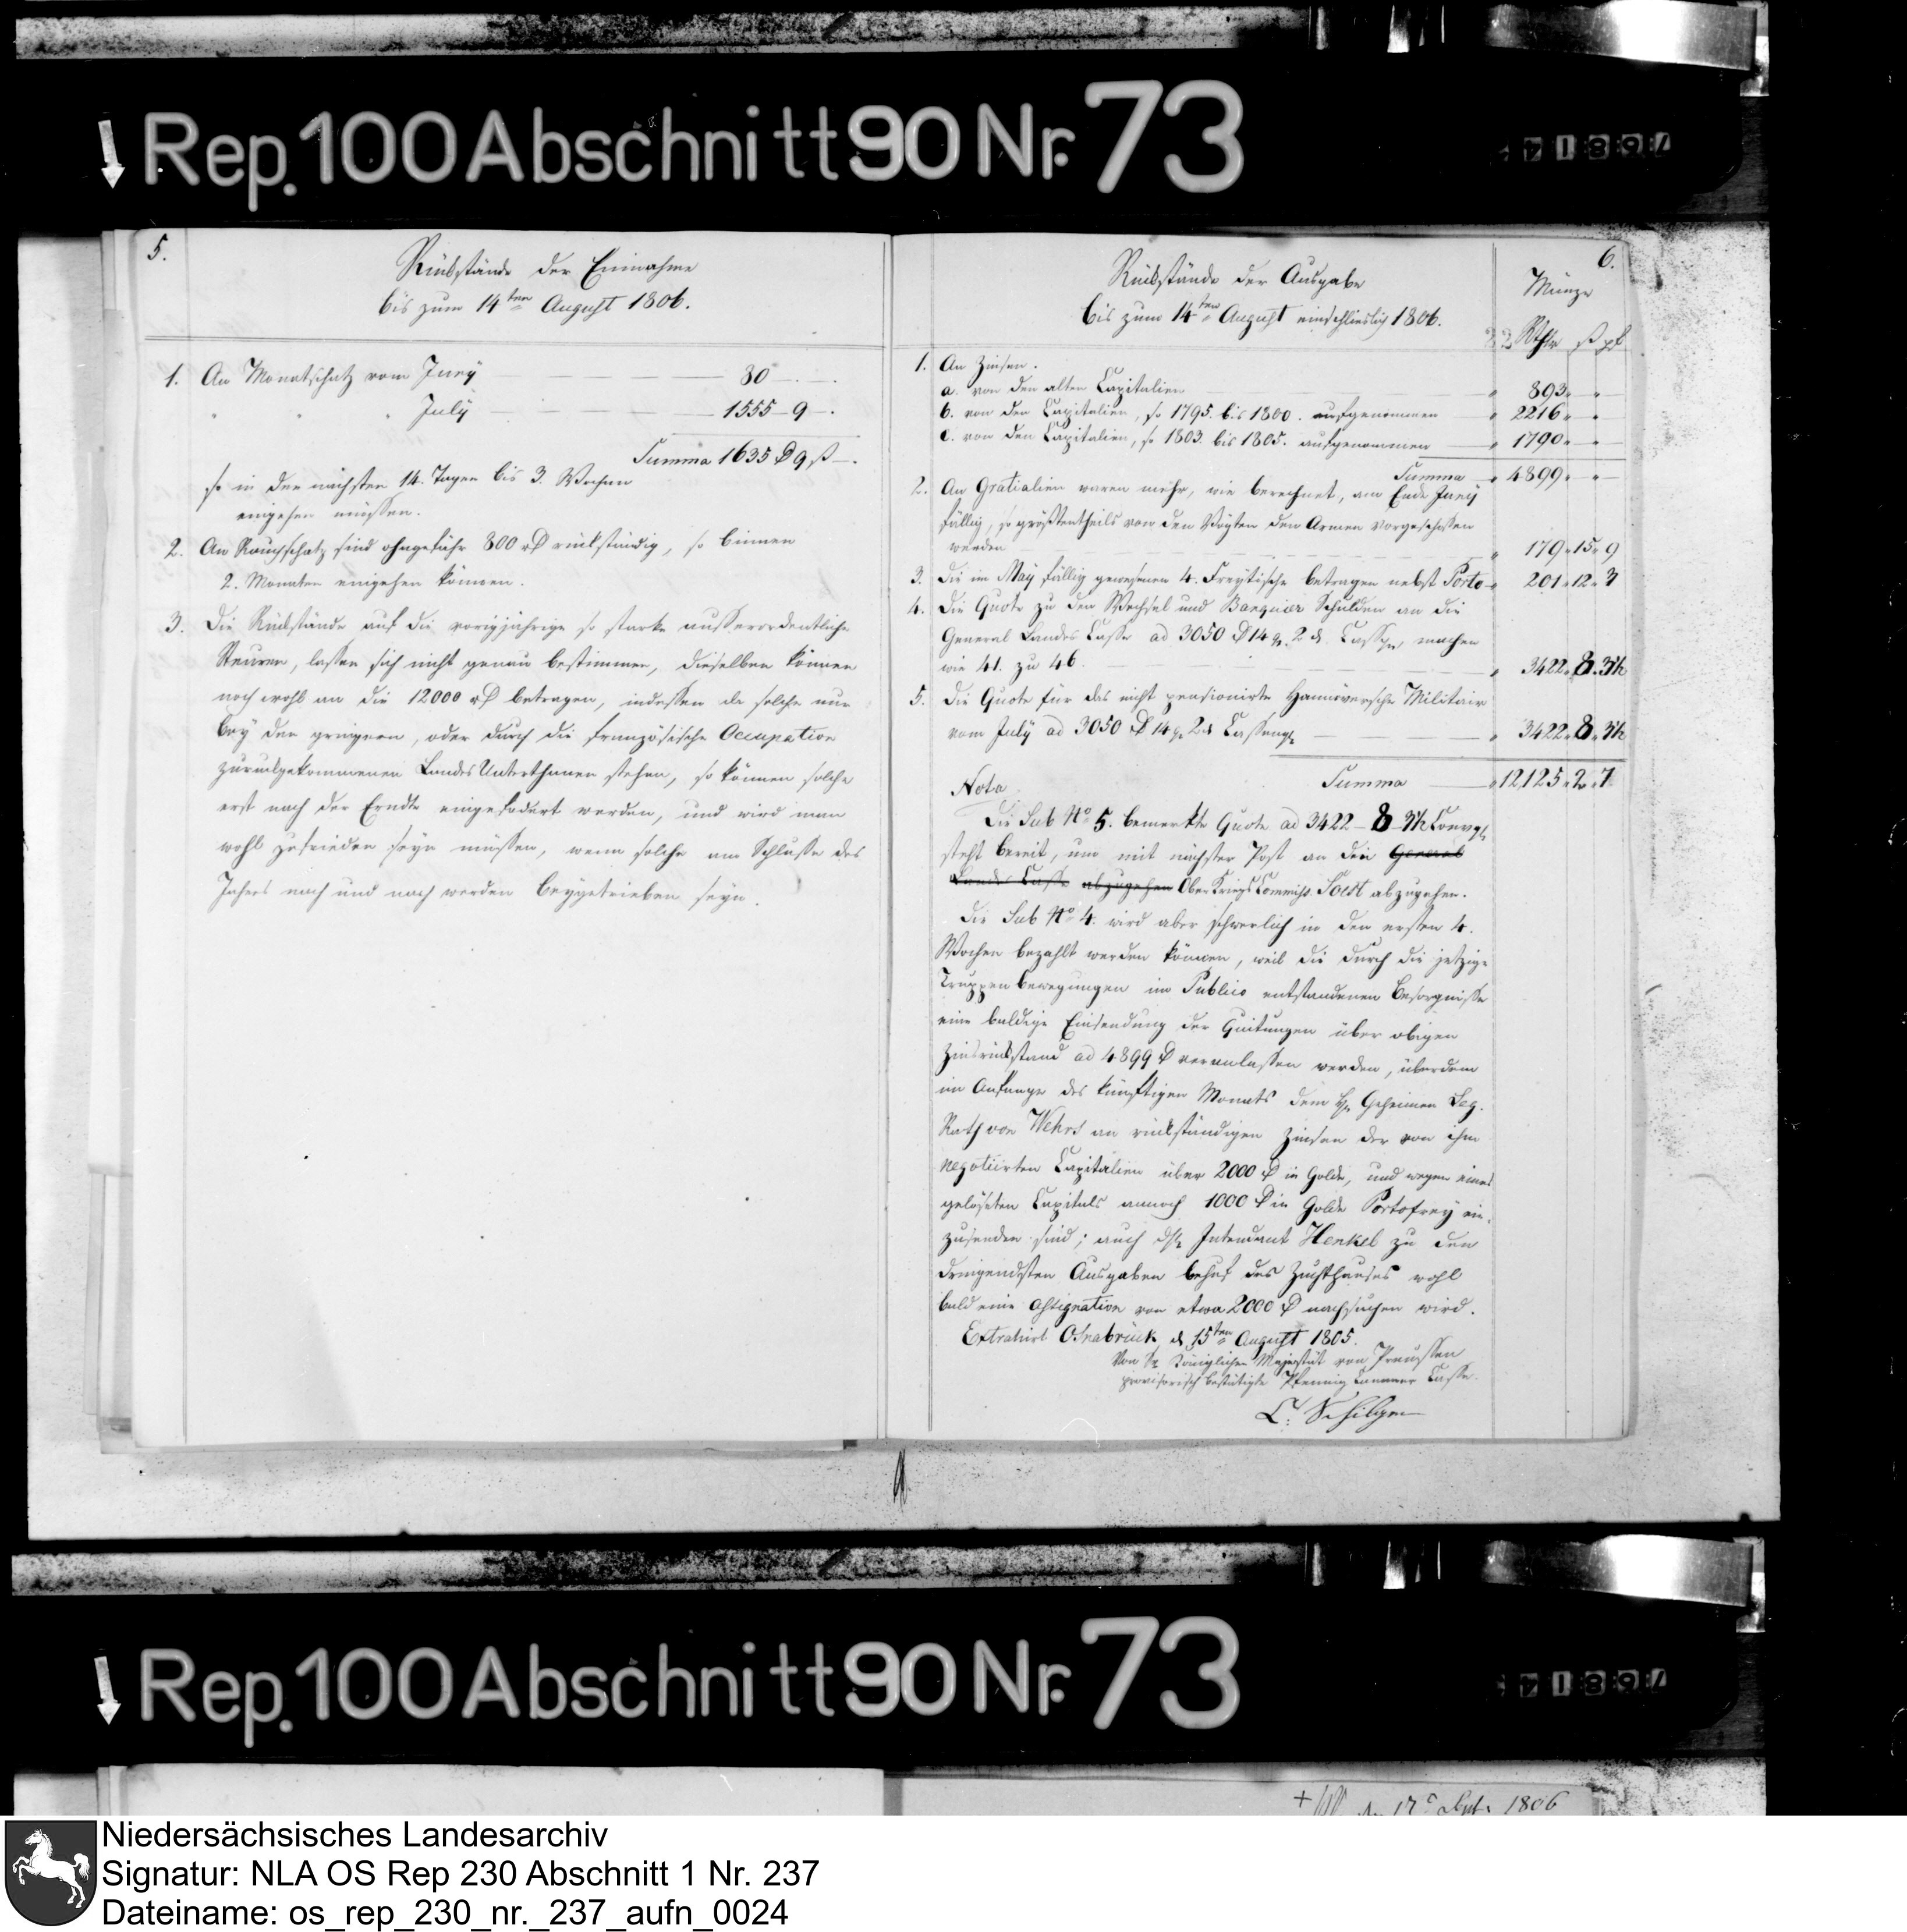 Rep. 100 Abschnitt 90 Nr. 73
5.
Rückstände der Einnahme
bis zum 14ten August 1806.
1. An Monatschatz vom Juny 80 — . —.
" " " July 1555 — 9 —.
Summa 1635 rD 9 ß —.
so in den nächsten 14. Tagen bis 3. Wochen
eingehen müssen.
2. An Rauchschatz sind ohngefähr 800 rD rückständig, so binnen
2. Monaten eingehen können.
3. Die Rückstände auf die vorigjährige so starke ausserordentliche
Steuren, lassen sich nicht genau bestimmen, dieselben können
noch wohl an die 12000 rD betragen, indessen da solche nur
bey den geringern, oder durch die französische Occupation
zurückgekommenen Landes Unterthanen stehen, so können solche
erst nach der Erndte eingefodert werden, und wird man
wohl zufrieden seyn müssen, wenn solche am Schlusse des
Jahres nach und nach werden beygetrieben seyn.
6.
Rückstände der Ausgabe
bis zum 14ten August einschlieslich 1806.
Münze
Rthlr ß pf
1. An Zinsen.
a. von den alten Capitalien " 893 " " —
b. von den Capitalien, so 1795. bis 1800. aufgenommen " 2216 " " —
c. von den Capitalien, so 1803. bis 1805. aufgenommen " 1790 " " —
Summa " 4899 " " —
2. An Gratialien waren mehr, wie berechnet, am Ende Juny
fällig, so größtentheils von den Vögten den Armen vorgeschossen
werden " 179 " 15 " 9
3. Die im May fällig gewesenen 4. Freytische betragen nebst Porto " 201 " 12 " 3
4. Die Quote zu den Wechsel und Banquier Schulden an die
General Landes Casse ad 3050 rD 14 g. 2 d. machen
wie 41. zu 46. " 3422 " 8 " 3½
5. Die Quote für das nicht pensionirte Hannöversche Militair
vom July ad 3050 rD 14 g. 2 d. " 3422 " 8 " 3½
Summa " 12125 " 2 " 7
Nota
Die Sub No 5. bemerkte Quote ad 3422 — 8 — 3½
steht bereit, um mit nächster Post an den General
Landes Casse abzugehen Ober Kriegs Commiss. abzugehen.
Die Sub No 4. wird aber schwerlich in den ersten 4.
Wochen bezahlt werden können, weil die durch die jetzige
Truppen bewegungen im Publico entstandenen Besorgnisse
eine baldige Einsendung der Quitungen über obigen
Zinsrückstand ad 4899 rD veranlassen werden, überdem
im Anfange des künftigen Monats dem H. Geheimen Leg.
Rath von Wehrs an rückständigen Zinsen der von ihm
negotiirten Capitalien über 2000 rD in Golde, und wegen eines
gelöseten Capitals annoch 1000 rD in Golde Portofrey ein-
zusenden sind; auch Intendant Henkel zu den
dringendsten Ausgaben behuf des Zuchthauses wohl
bald eine Assignation von etwa 2000 rD nachsuchen wird.
Extrahirt Osnabrück d. 15ten August 1805.
Von Sr. Königlichen Majestät von Preussen
provisorisch bestätigte Pfennig Cammer Casse.
C. Schilgen
Rep. 100 Abschnitt 90 Nr. 73
1806
Niedersächsisches Landesarchiv
Signatur: NLA OS Rep 230 Abschnitt 1 Nr. 237
Dateiname: os_rep_230_nr._237_aufn_0024